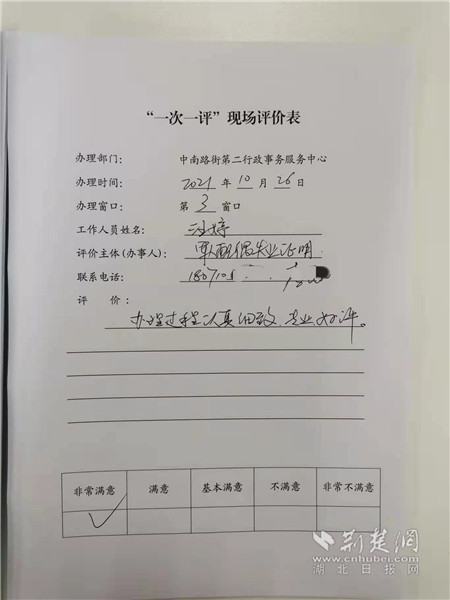 “一次一评”现场评价表
办理部门： 中南路街第二行政事务服务中心
办理时间： 2021 年 10 月 26 日
办理窗口： 第 3 窗口
工作人员姓名： 汪婷
评价主体(办事人)： 军人配偶失业证明
联系电话：
评 价：
办理过程认真细致，专业好评。
非常满意 满意 基本满意 不满意 非常不满意
✓
荆楚网
www.cnhubei.com
湖北日报网